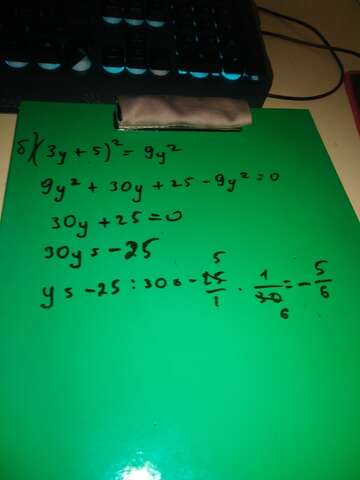 б) (3y + 5)² = 9y²
9y² + 30y + 25 - 9y² = 0
30y + 25 = 0
30y = -25
y = -25 : 30 = - 25/1 · 1/30 = - 5/6
5
6